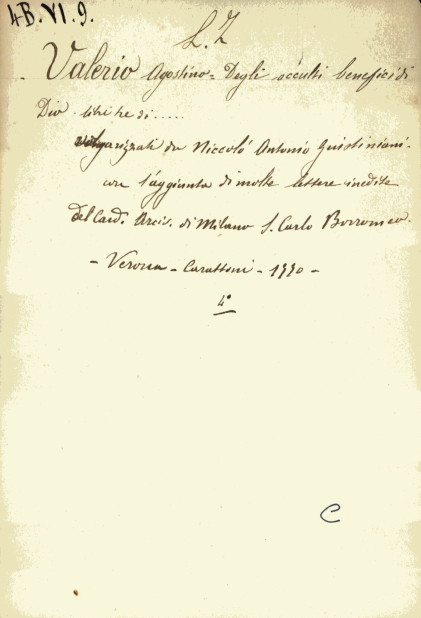 4B. VI. 9.
L. Z
Valerio Agostino = Degli occulti benefici di
Dio libri tre di.....
volgarizzati da Niccolò Antonio Giustiniani -
con l'aggiunta di molte lettere inedite
del Card. Arciv. di Milano S. Carlo Borromeo.
- Verona - Carattoni - 1770 -
4°
C